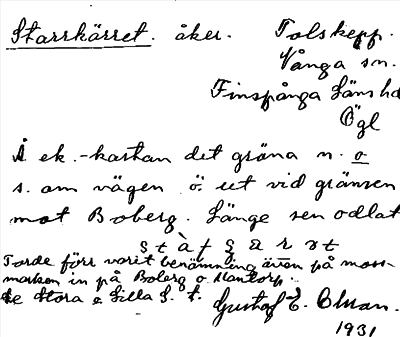 Starrkärret. åker. Tolskepp.
Vånga sn.
Finspånga läns hd
Ögl
Å ek.-kartan det gröna n. o
s. om vägen ö. ut vid gränsen
mot Boberg. Länge sen odlat
Torde förr varit benämning även på moss-
marken in på Boberg o
Stora o Lilla S.
Gustaf E.
1931